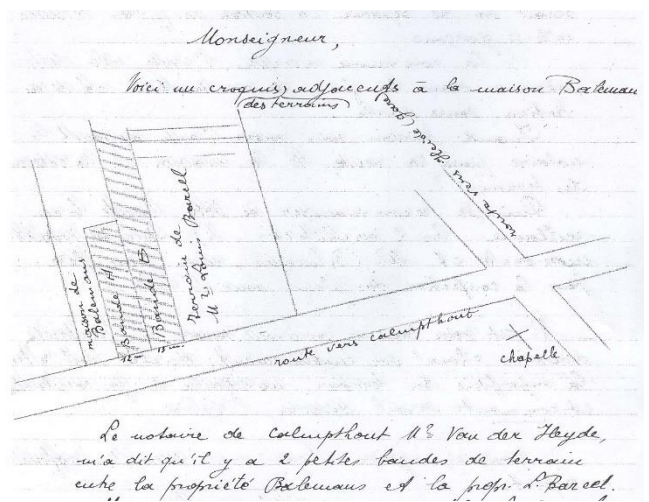 Monseigneur,
Voici un croquis adjacents à la maison Balemans
des terrains
route vers Heide (gare
maison de
Balemans
Bande A
Bande B
terrain de
Mr Louis Barell
12 m
15 m
route vers Calmpthout
chapelle
Le notaire de Calmpthout Mr Van der Heyde,
m'a dit qu'il y a 2 petites bandes de terrain
entre la propriété Balemans et la propr. L. Barell.